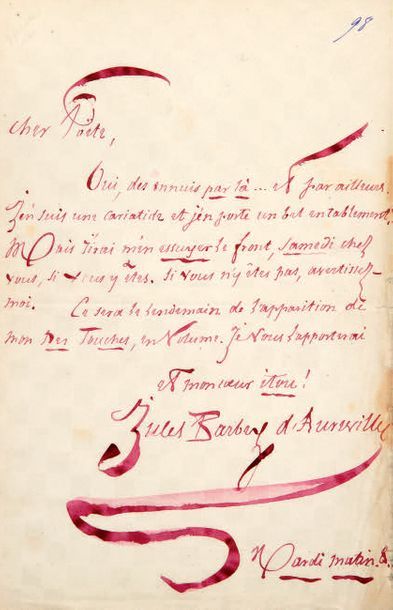 98
cher Poëte,
Oui, des ennuis par là ... et par ailleurs.
J'en suis une cariatide et j'en porte un bel entablement!
Mais j'irai m'en essuyer le front, samedi chez
vous, si vous y êtes. Si vous n'y êtes pas, avertissez-
moi. Ce sera le lendemain de l'apparition de
mon Des Touches, en volume. Je vous l'apporterai
et mon cœur itou!
Jules Barbey d'Aurevilly
Mardi matin. 8.